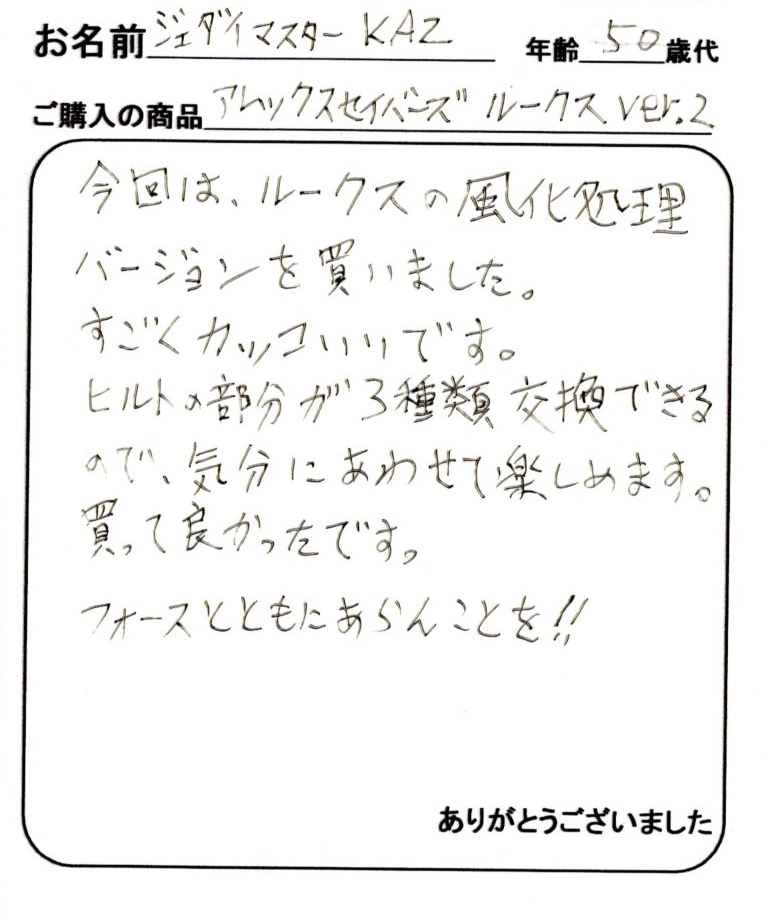 お名前 ジェダイマスター KAZ 年齢 50 歳代
ご購入の商品 アレックスセイバーズ ルークス ver.2
今回は、ルークスの風化処理
バージョンを買いました。
すごくカッコいいです。
ヒルトの部分が3種類交換できる
ので、気分にあわせて楽しめます。
買って良かったです。
フォースとともにあらんことを!!
ありがとうございました